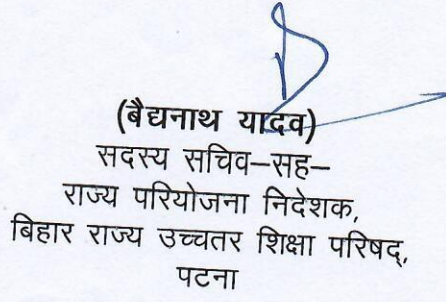 (बैद्यनाथ यादव)
सदस्य सचिव–सह–
राज्य परियोजना निदेशक,
बिहार राज्य उच्चतर शिक्षा परिषद्,
पटना